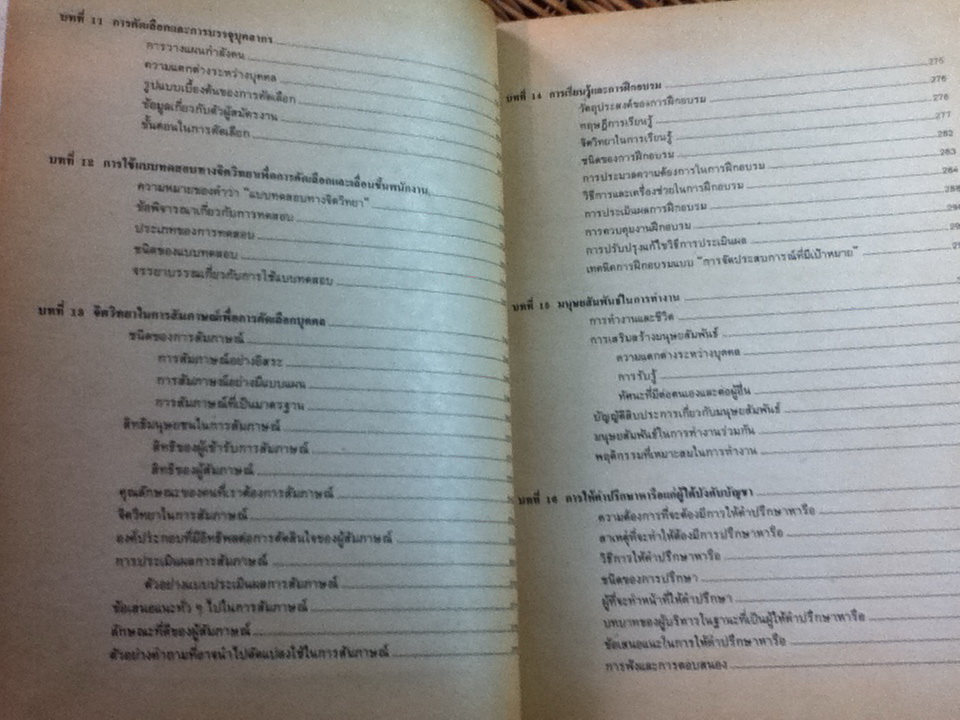 บทที่ 11 การคัดเลือกและการบรรจุบุคลากร
การวางแผนกำลังคน
ความแตกต่างระหว่างบุคคล
รูปแบบเบื้องต้นของการคัดเลือก
ข้อมูลเกี่ยวกับตัวผู้สมัครงาน
ขั้นตอนในการคัดเลือก
บทที่ 12 การใช้แบบทดสอบทางจิตวิทยาเพื่อการคัดเลือกและเลื่อนขั้นพนักงาน
ความหมายของคำว่า "แบบทดสอบทางจิตวิทยา"
ข้อพิจารณาเกี่ยวกับการทดสอบ
ประเภทของการทดสอบ
ชนิดของแบบทดสอบ
จรรยาบรรณเกี่ยวกับการใช้แบบทดสอบ
บทที่ 13 จิตวิทยาในการสัมภาษณ์เพื่อการคัดเลือกบุคคล
ชนิดของการสัมภาษณ์
การสัมภาษณ์อย่างอิสระ
การสัมภาษณ์อย่างมีแบบแผน
การสัมภาษณ์ที่เป็นมาตรฐาน
สิทธิมนุษยชนในการสัมภาษณ์
สิทธิของผู้เข้ารับการสัมภาษณ์
สิทธิของผู้สัมภาษณ์
คุณลักษณะของคนที่เราต้องการสัมภาษณ์
จิตวิทยาในการสัมภาษณ์
องค์ประกอบที่มีอิทธิพลต่อการตัดสินใจของผู้สัมภาษณ์
การประเมินผลการสัมภาษณ์
ตัวอย่างแบบประเมินผลการสัมภาษณ์
ข้อเสนอแนะทั่ว ๆ ไปในการสัมภาษณ์
ลักษณะที่ดีของผู้สัมภาษณ์
ตัวอย่างคำถามที่อาจนำไปดัดแปลงใช้ในการสัมภาษณ์
บทที่ 14 การเรียนรู้และการฝึกอบรม 275
วัตถุประสงค์ของการฝึกอบรม 276
ทฤษฎีการเรียนรู้ 276
จิตวิทยาในการเรียนรู้ 277
ชนิดของการฝึกอบรม 282
การประมวลความต้องการในการฝึกอบรม 283
วิธีการและเครื่องช่วยในการฝึกอบรม 284
การประเมินผลการฝึกอบรม
การควบคุมงานฝึกอบรม
การปรับปรุงแก้ไขวิธีการประเมินผล
เทคนิคการฝึกอบรมแบบ "การจัดประสบการณ์ที่มีเป้าหมาย"
บทที่ 15 มนุษยสัมพันธ์ในการทำงาน
การทำงานและชีวิต
การเสริมสร้างมนุษยสัมพันธ์
ความแตกต่างระหว่างบุคคล
การรับรู้
ทัศนะที่มีต่อตนเองและต่อผู้อื่น
บัญญัติสิบประการเกี่ยวกับมนุษยสัมพันธ์
มนุษยสัมพันธ์ในการทำงานร่วมกัน
พฤติกรรมที่เหมาะสมในการทำงาน
บทที่ 16 การให้คำปรึกษาหารือแก่ผู้ใต้บังคับบัญชา
ความต้องการที่จะต้องมีการให้คำปรึกษาหารือ
สาเหตุที่จะทำให้ต้องมีการปรึกษาหารือ
วิธีการให้คำปรึกษาหารือ
ชนิดของการปรึกษา
ผู้ที่จะทำหน้าที่ให้คำปรึกษา
บทบาทของผู้บริหารในฐานะที่เป็นผู้ให้คำปรึกษาหารือ
ข้อเสนอแนะในการให้คำปรึกษาหารือ
การฟังและการตอบสนอง